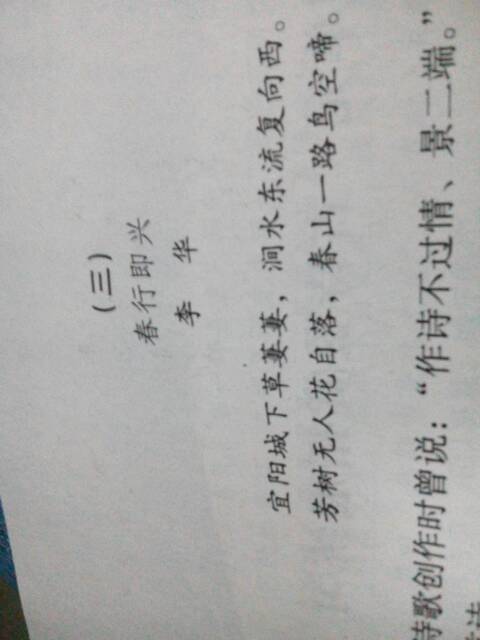 (三)
春行即兴
李 华
宜阳城下草萋萋，涧水东流复向西。
芳树无人花自落，春山一路鸟空啼。
诗歌创作时曾说：“作诗不过情、景二端。”